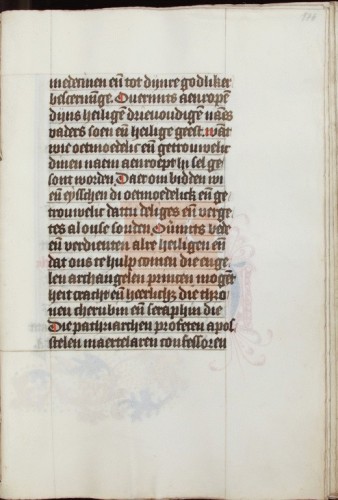 116
medermen eñ tot dijnre godliker
bescermĩge. Ouermits aenropẽ
dijns heiligẽ drieuoudigẽ naẽs
vaders soen eñ heilige geest. wãt
wie oetmoedelic eñ getrouwelic
dinen naem aenroept hi sel ge
sont worden. Daer om bidden wi
eñ eysschen di oetmoedelick eñ ge
trouwelic dattu delges eñ verge
tes al onse sonden. Ouermits bede
eñ verdienten alre heiligen eñ
dat ons te hulp comen die enge
len archangelen princen mogen
heit cracht eñ heerlich; die thro
nen cherubin eñ seraphin die
Die patriarchen profeten apos
stelen maertelaren confessoren